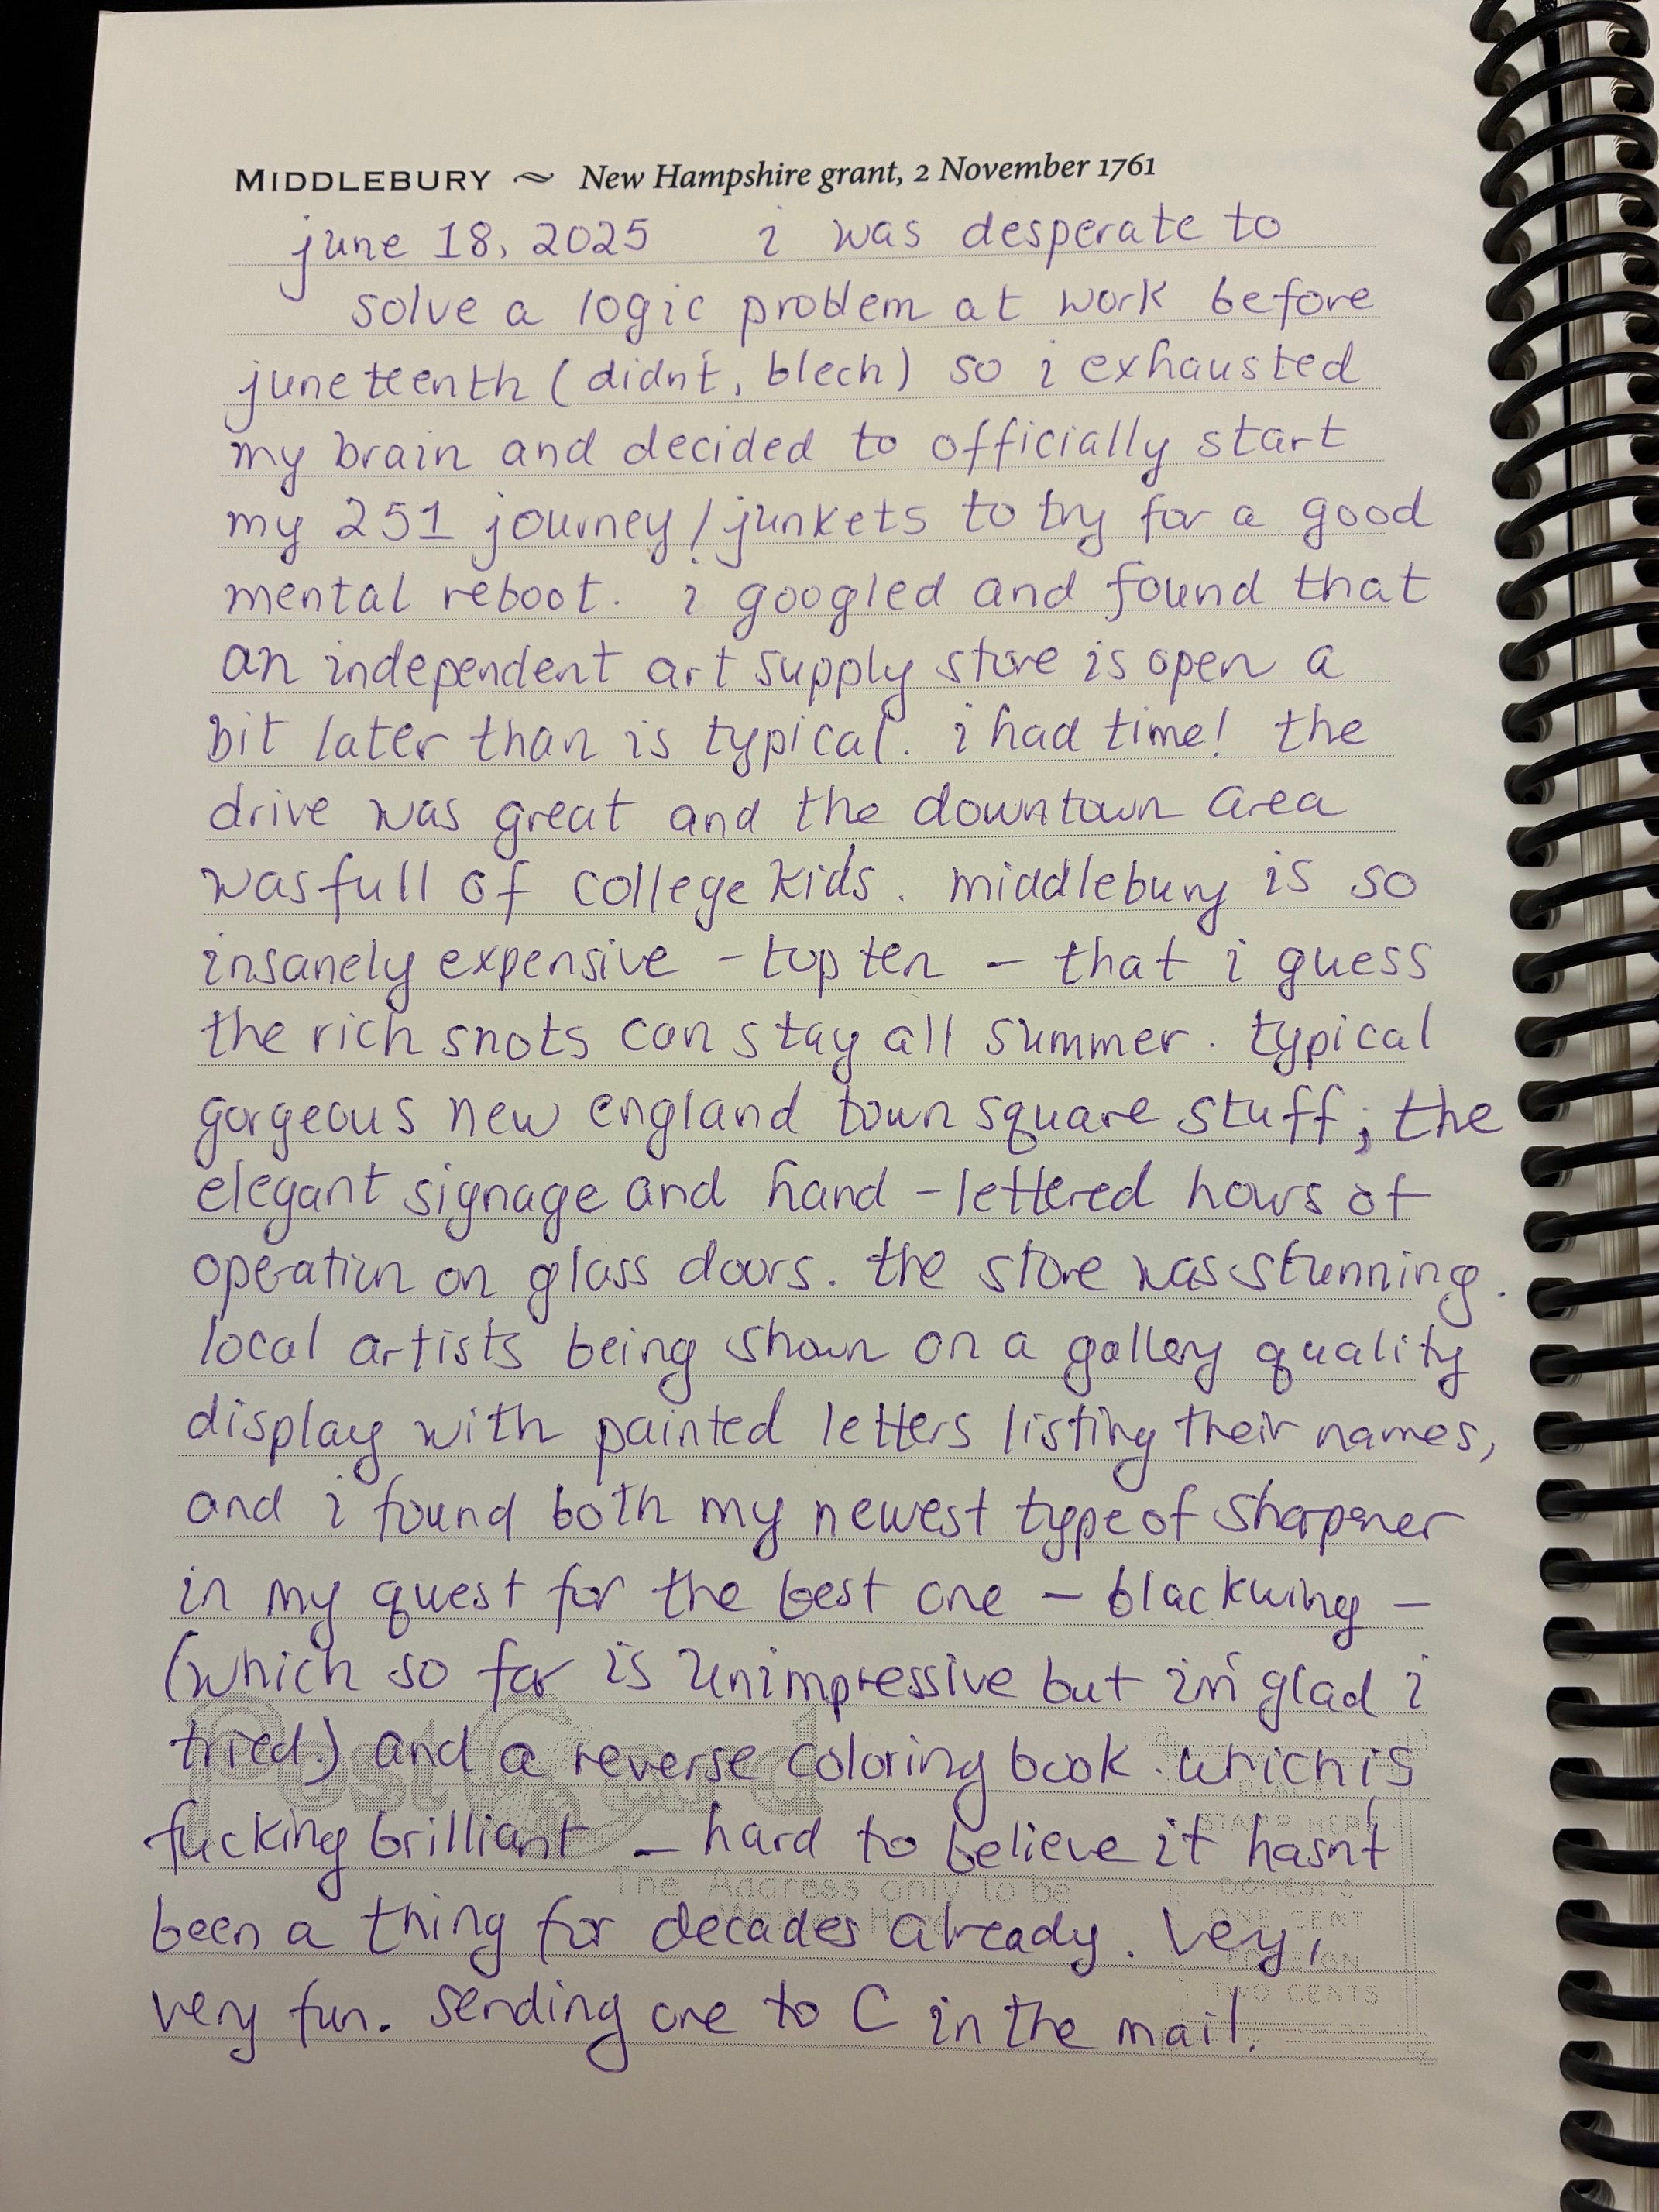 MIDDLEBURY ~ New Hampshire grant, 2 November 1761
june 18, 2025 i was desperate to
solve a logic problem at work before
juneteenth (didn't, blech) so i exhausted
my brain and decided to officially start
my 251 journey/junkets to try for a good
mental reboot. i googled and found that
an independent art supply store is open a
bit later than is typical. i had time! the
drive was great and the downtown area
was full of college kids. middlebury is so
insanely expensive - top ten - that i guess
the rich snots can stay all summer. typical
gorgeous new england town square stuff; the
elegant signage and hand-lettered hours of
operation on glass doors. the store was stunning.
local artists being shown on a gallery quality
display with painted letters listing their names,
and i found both my newest type of sharpener
in my quest for the best one - blackwing -
(which so far is unimpressive but i'm glad i
tried.) and a reverse coloring book. which is
fucking brilliant - hard to believe it hasn't
been a thing for decades already. very,
very fun. sending one to C in the mail.
Post Card
STAMP HERE
The Address only to be
ONE CENT
FOREIGN
TWO CENTS